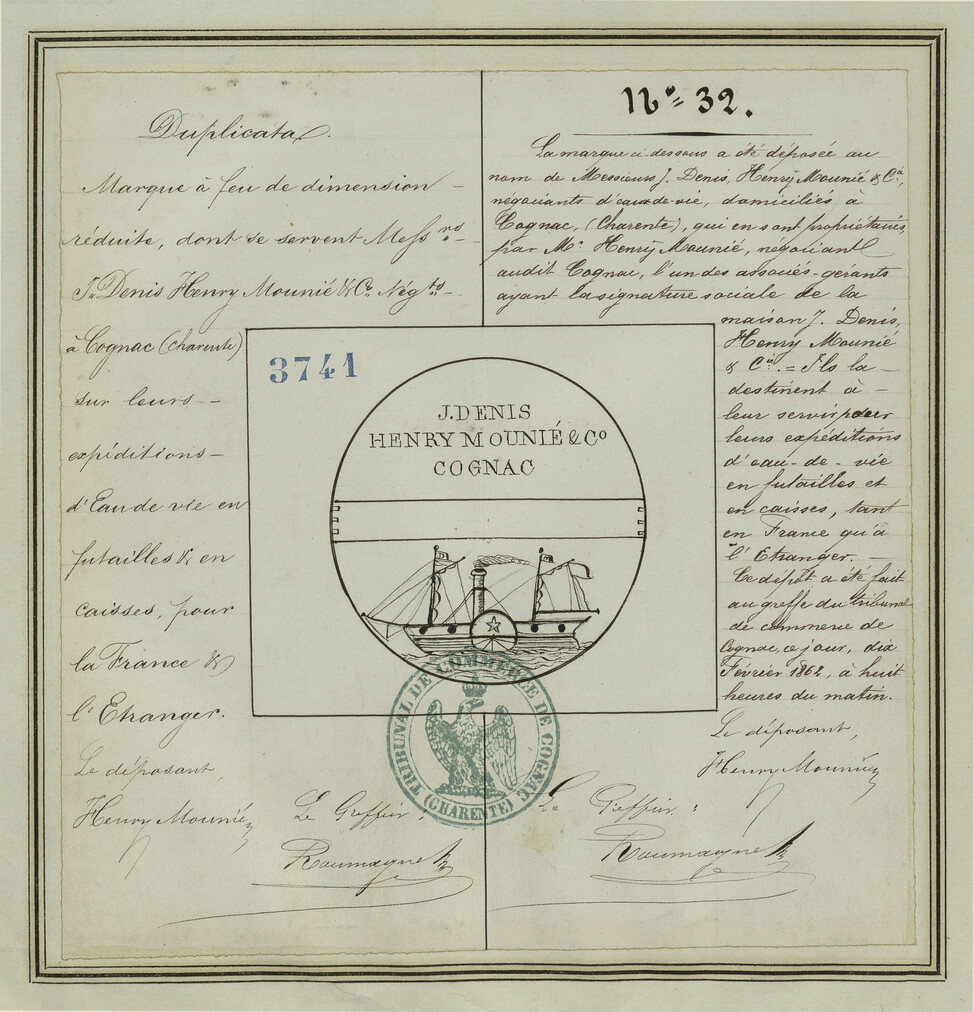 Duplicata.
Marque à feu de dimension –
réduite, dont se servent Messrs –
J. Denis Henry Mounié & Co. Négts –
à Cognac (Charente)
sur leurs –
expéditions –
d'Eau de vie en
futailles & en
caisses, pour
la France &
l'Etranger.
Le déposant,
Henry Mounié
Le Greffier,
Roumagne
No= 32.
La marque ci dessous a été déposée au
nom de Messieurs J. Denis, Henry Mounié & Cie,
négociants d'eaux-de-vie, domiciliés à
Cognac, (Charente), qui en sont propriétaires,
par Mr. Henry Mounié, négociant
audit Cognac, l'un des associés-gérants
ayant la signature sociale de la
maison J. Denis,
Henry Mounié
& Cie. = Ils la –
destinent à –
leur servir pour
leurs expéditions
d'eau-de-vie
en futailles et
en caisses, tant
en France qu'à
l'Etranger.
Ce dépôt a été fait
au greffe du tribunal
de commerce de
Cognac, ce jour, dix
Février 1862, à huit
heures du matin.
Le déposant,
Henry Mounié
Le Greffier:
Roumagne
3741
J. DENIS
HENRY MOUNIÉ & Co
COGNAC
TRIBUNAL DE COMMERCE DE COGNAC
(CHARENTE)